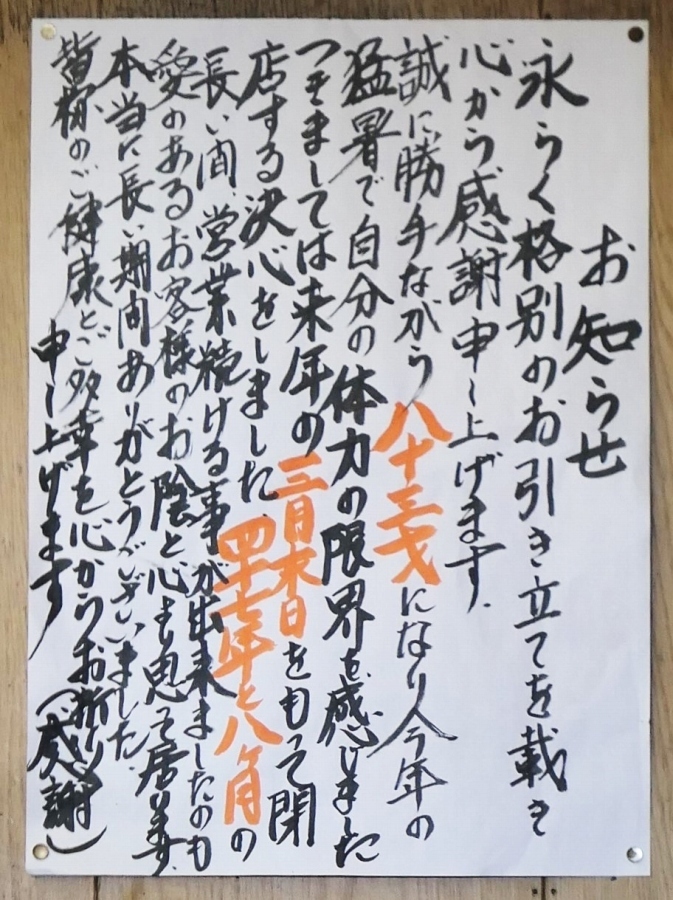 お知らせ
永らく格別のお引き立てを載き
心から感謝申し上げます.
誠に勝手ながら八十三才になり今年の
猛暑で自分の体力の限界を感じました
つきましては来年の三月末日をもって閉
店する決心をしました.四十七年と八ヶ月の
長い間、営業続ける事が出来ましたのも
愛のあるお客様のお陰と心も思って居ります.
本当に長い期间ありがとうございました.
皆様のご健康とご多幸を心からお祈り
申し上げます(感謝)